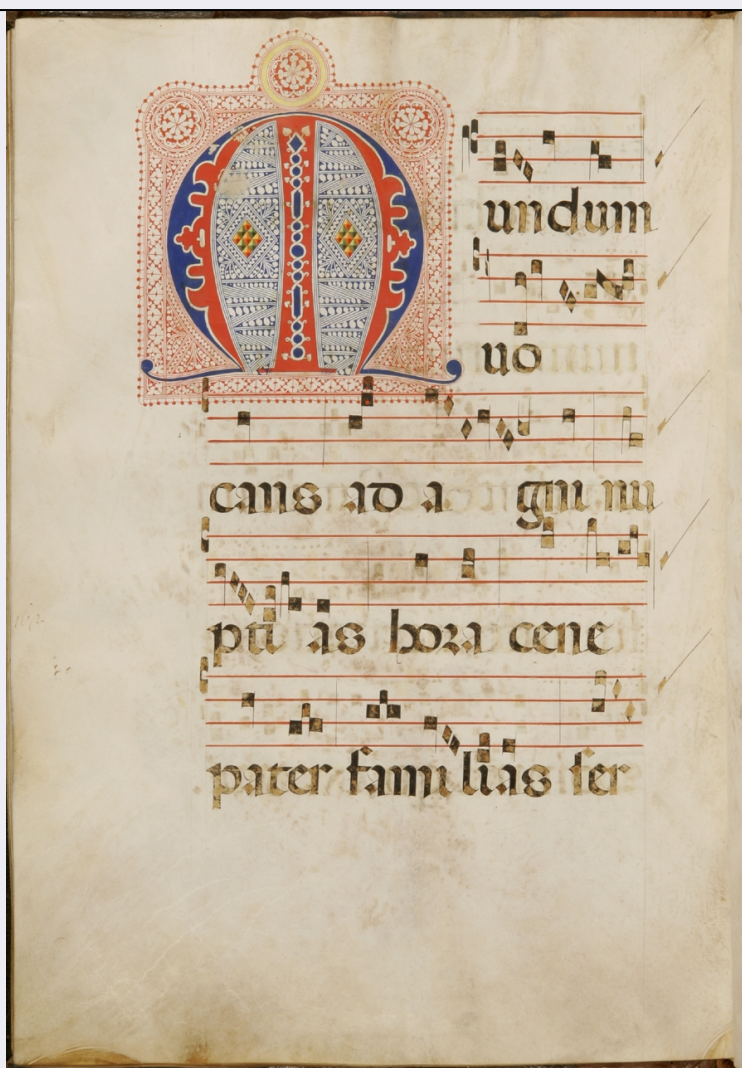 Mundum
uo
cans ad a gni nu
pti as hora cene
pater familias ser